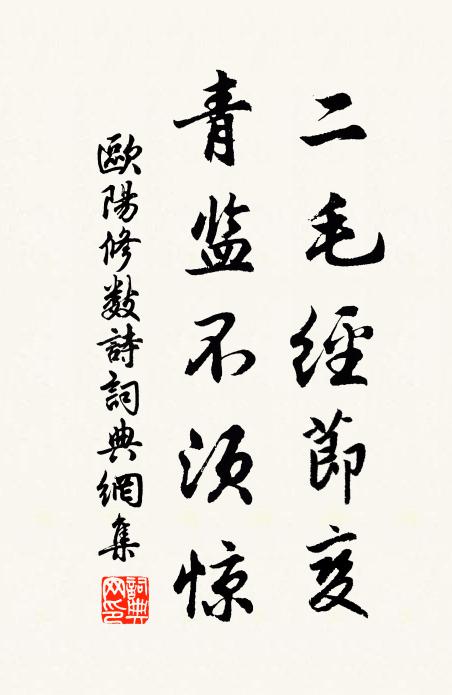 二毛經節变
青监不须惊
歐陽修数詩詞典網集
詞典網印